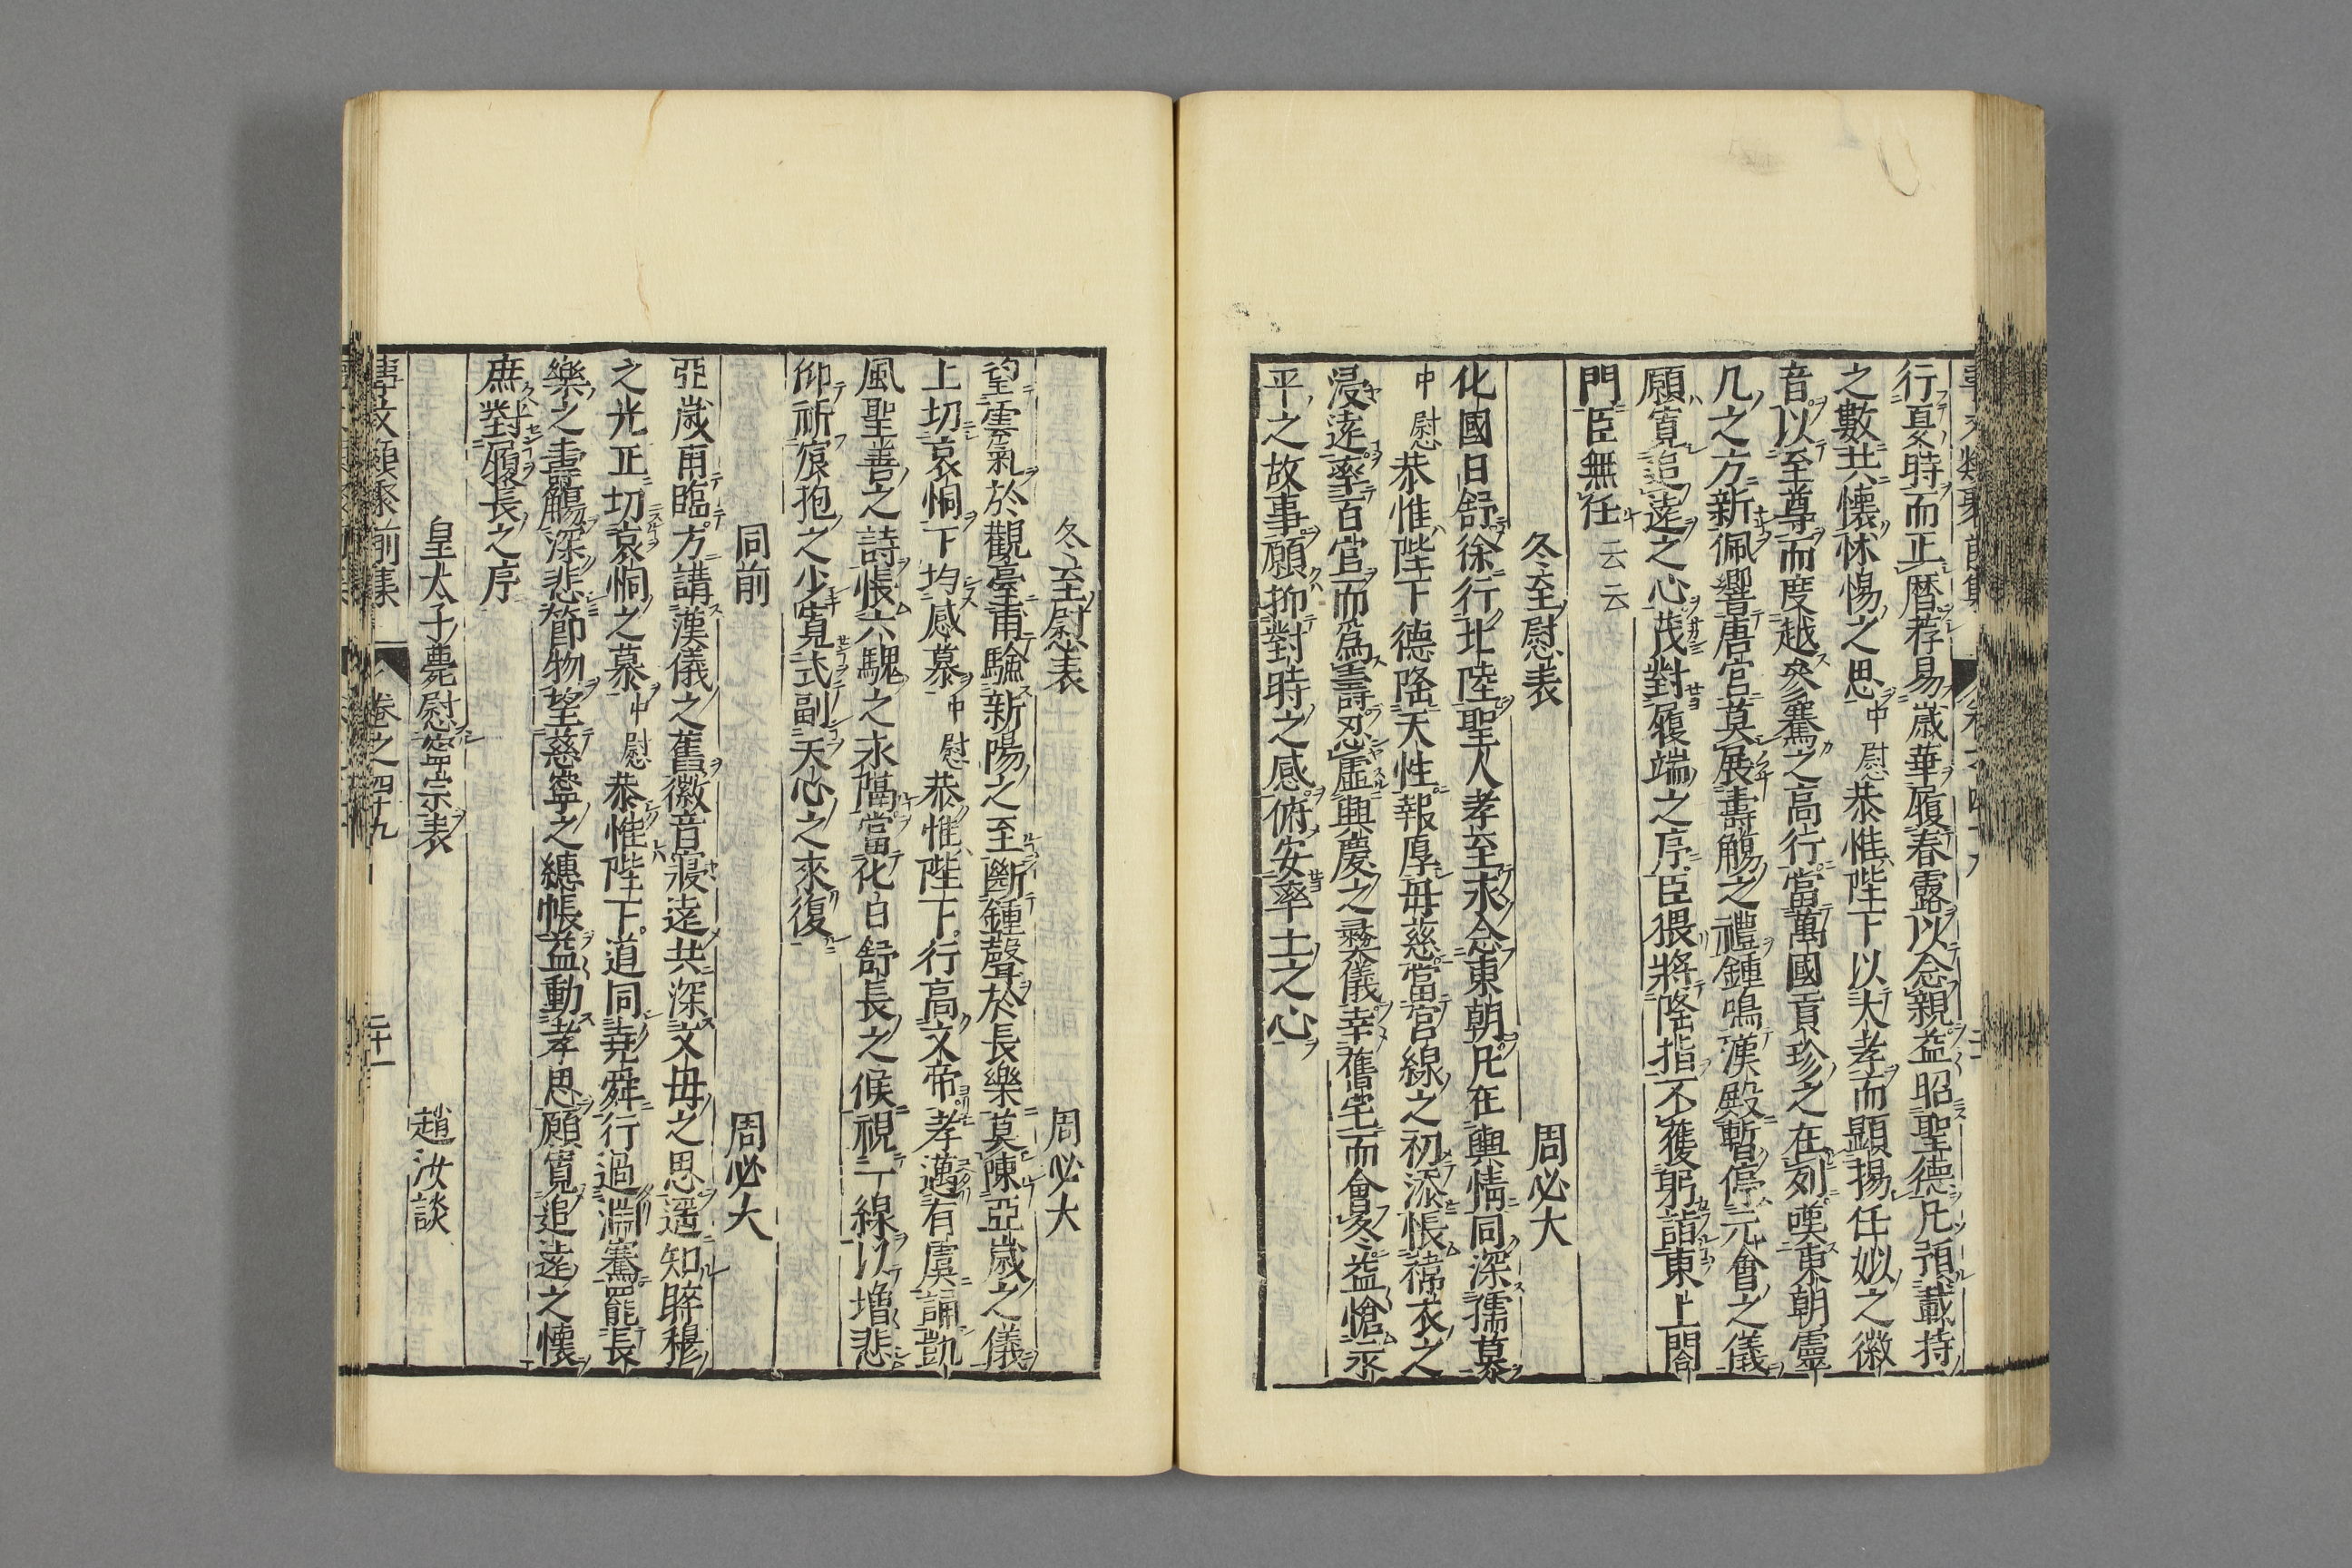 行夏時而正曆荐易歲華履春露以念親益昭聖德凡預載持
之數共懷怵惕之思中慰恭惟陛下以大孝而顯揚任姒之徽
音以至尊而度越參騫之高行當萬國貢珍之在列嘆東朝靈
几之方新佩響唐宮莫展壽觴之禮鍾鳴漢殿暫停元會之儀
願寬追遠之心茂對履端之序臣猥將隆指不獲躬詣東上閤
門臣無任云云
冬至慰表 周必大
化國日舒徐行北陸聖人孝至永念東朝凡在輿情同深孺慕
中慰恭惟陛下德隆天性報厚母慈當宮線之初添悵禕衣之
浸遠率百官而爲壽忍虛興慶之彝儀幸舊宅而會冬益愴永
平之故事願抑對時之感俯安率土之心
冬至慰表 周必大
望雲氣於觀臺甫驗新陽之至斷鍾聲於長樂莫陳亞歲之儀
上切哀恫下均感慕中慰恭惟陛下行高文帝孝邁有虞誦凱
風聖善之詩悵六騩之永隔當化日舒長之候視一線以增悲
仰祈宸抱之少寬式副天心之來復
同前 周必大
亞歲甫臨方講漢儀之舊徽音寖遠共深文母之思遥知睟穆
之光正切哀恫之慕中慰恭惟陛下道同堯舜行過淵騫罷長
樂之壽觴深悲節物望慈寧之繐帳益動孝思願寬追遠之懷
庶對履長之序
皇太子薨慰寧宗表 趙汝談
事文類聚前集 卷之四十九 二十一